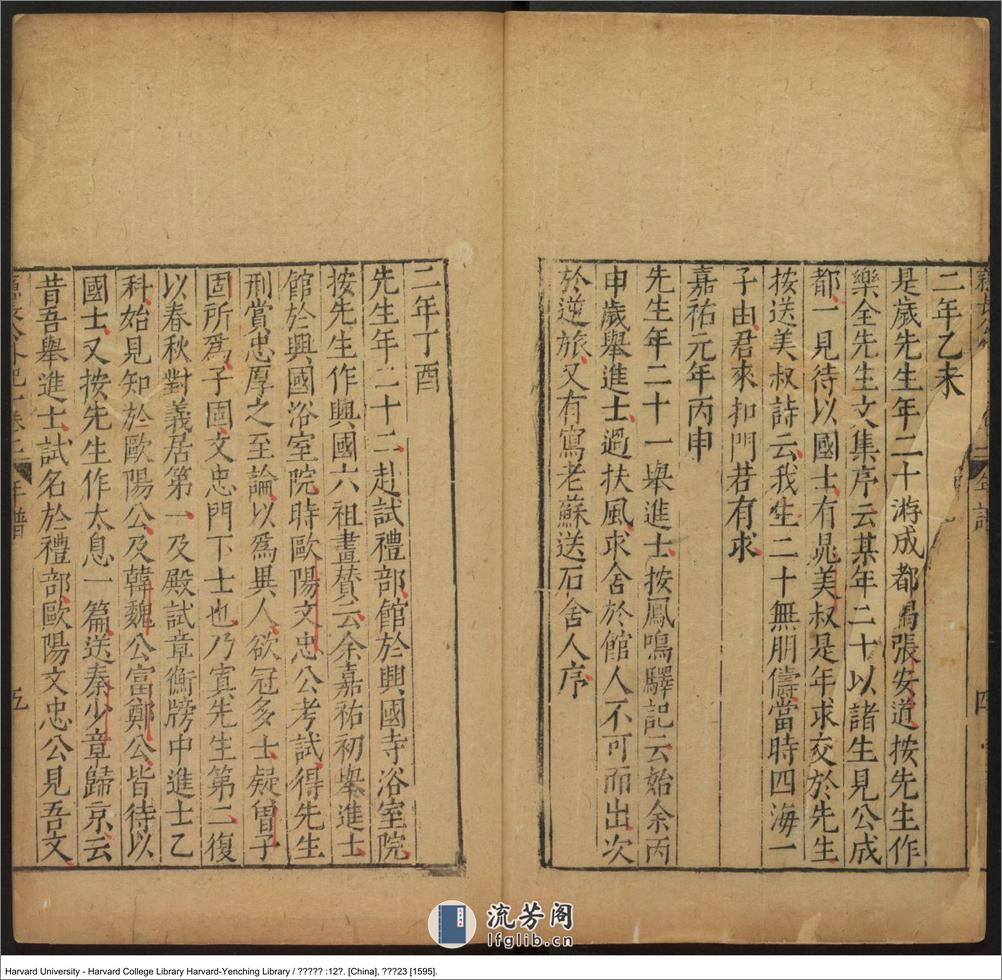 二年乙未
是歲先生年二十游成都謁張安道按先生作
樂全先生文集序云某年二十以諸生見公成
都一見待以國士有晁美叔是年求交於先生
按送美叔詩云我生二十無朋儔當時四海一
子由君來扣門若有求
嘉祐元年丙申
先生年二十一舉進士按鳳鳴驛記云始余丙
申歲舉進士過扶風求舍於館人不可而出次
於逆旅又有寫老蘇送石舍人序
二年丁酉
先生年二十二赴試禮部館於興國寺浴室院
按先生作興國六祖畫贊云余嘉祐初舉進士
館於興國浴室院時歐陽文忠公考試得先生
刑賞忠厚之至論以爲異人欲冠多士疑曾子
固所爲子固文忠門下士也乃寘先生第二復
以春秋對義居第一及殿試章衡牓中進士乙
科始見知於歐陽公及韓魏公富鄭公皆待以
國士又按先生作太息一篇送秦少章歸京云
昔吾舉進士試名於禮部歐陽文忠公見吾文
年譜
五
流芳阁
lfglib.cn
Harvard University - Harvard College Library Harvard-Yenching Library / ????? :12?. [China], ???23 [1595].